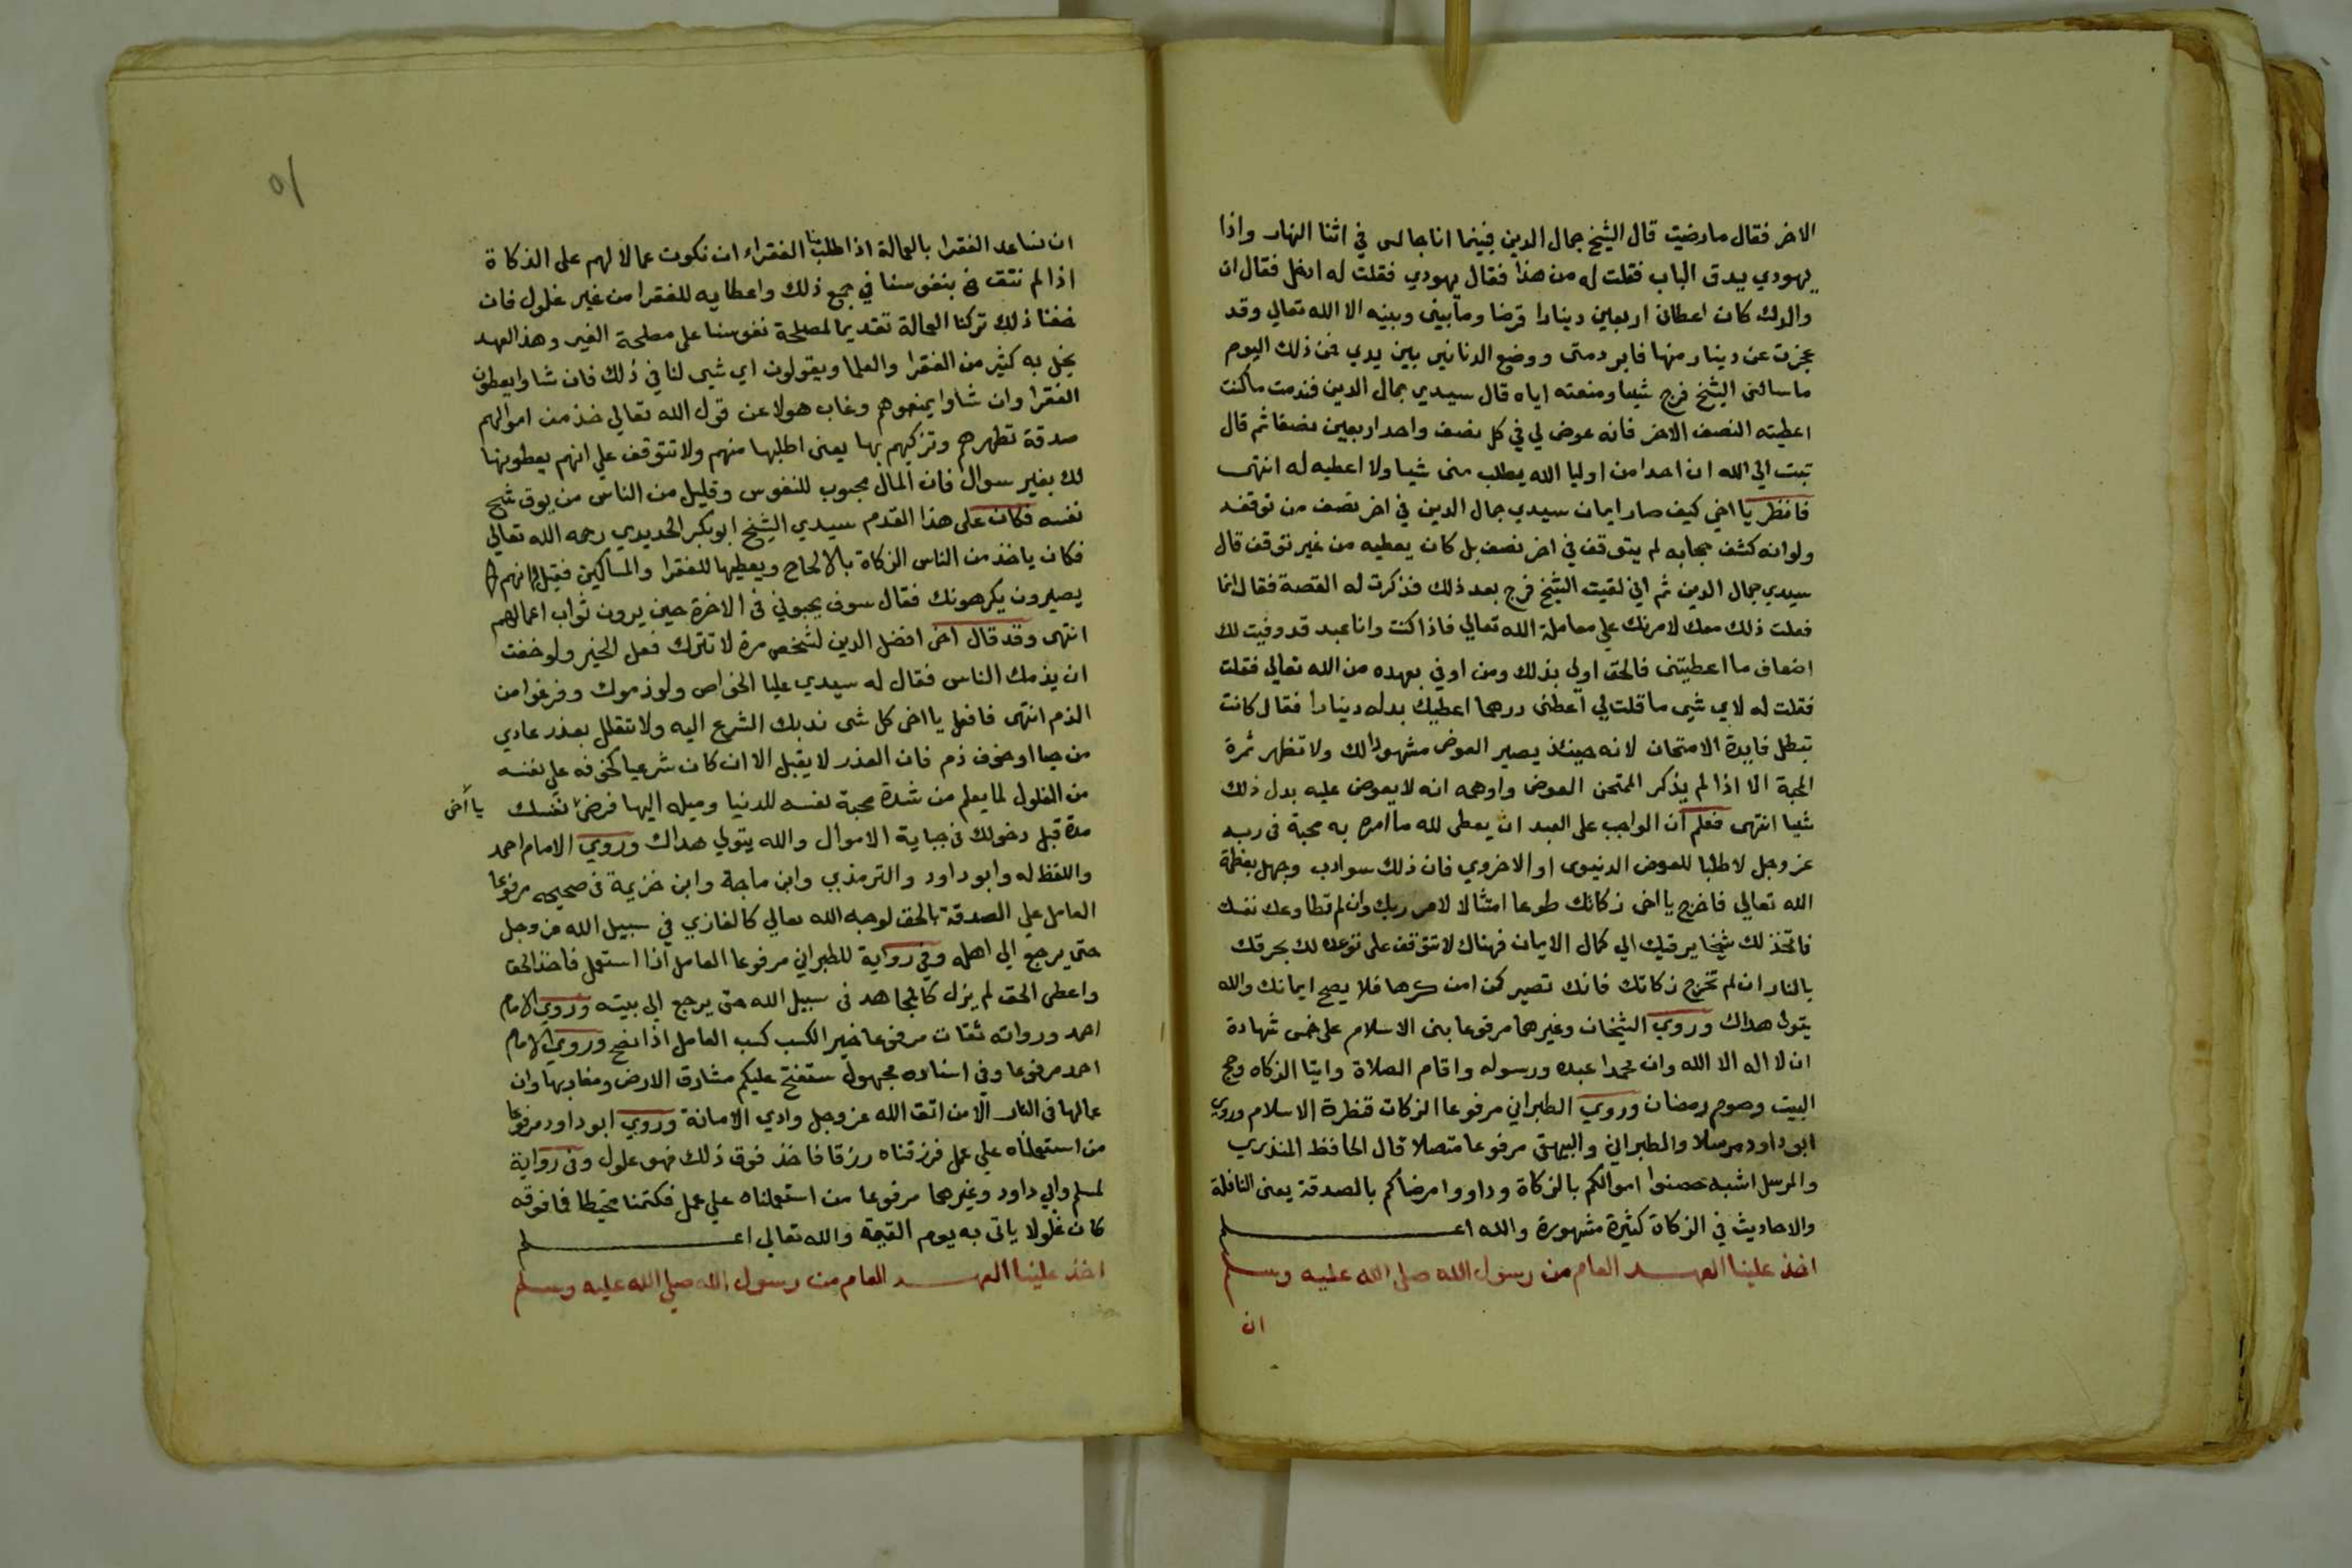 الاخر فقال ما رضيت قال الشيخ جمال الدين فبينما انا جالس في اثنا النهار واذا
يهودي يدق الباب فقلت له من هذا فقال يهودي فقلت له ادخل فقال ان
والدك كان اعطاني اربعين دينارا قرضا وما بيني وبينه الا الله تعالي وقد
عجزت عن دينار منها فابر ذمتي ووضع الدنانير بين يدي فمن ذلك اليوم
ما سالني الشيخ فرج شيا ومنعته اياه قال سيدي جمال الدين فندمت ما كنت
اعطيته النصف الاخر فانه عوض لي في كل نصف واحد اربعين نصفا ثم قال
تبت الي الله ان احدا من اوليا الله يطلب مني شيا ولا اعطيه له انتهى
فانظر يا اخي كيف صار ايمان سيدي جمال الدين في اخر نصف من توقفه
ولو انه كشف حجابه لم يتوقف في اخر نصف بل كان يعطيه من غير توقف قال
سيدي جمال الدين ثم اني لقيت الشيخ فرج بعد ذلك فذكرت له القصة فقال انما
فعلت ذلك معك لامرنك علي معاملة الله تعالي فاذا كنت وانا عبد قد وفيت لك
اضعاف ما اعطيتني فالحق اولي بذلك ومن اوفي بعهده من الله تعالي فقلت
فقلت له لاي شي ما قلت لي اعطني درهما اعطيك بدله دينارا فقال كانت
تبطل فايدة الامتحان لانه حينئذ يصير العوض مشهودا لك ولا تظهر ثمرة
المحبة الا اذا لم يذكر الممتحن العوض واوهمه انه لا يعوض عليه بدل ذلك
شيا انتهى فعلم ان الواجب على العبد ان يعطى لله ما امره به محبة في ربه
عز وجل لا طلبا للعوض الدنيوى او الاخروي فان ذلك سو ادب وجهل بعظمة
الله تعالي فاخرج يا اخى زكاتك طوعا امتثالا لامر ربك وان لم تطاوعك نفسك
فاتخذ لك شيخا يرقيك الي كمال الايمان فهناك لا تتوقف على توعده لك بحرقك
بالنار ان لم تخرج زكاتك فانك تصير كمن امن كرها فلا يصح ايمانك والله
يتولى هداك وروي الشيخان وغيرهما مرفوعا بنى الاسلام على خمس شهادة
ان لا اله الا الله وان محمدا عبده ورسوله واقام الصلاة وايتا الزكاه وحج
البيت وصوم رمضان وروي الطبراني مرفوعا الزكات قنطرة الاسلام وروي
ابو داود مرسلا والطبراني والبيهقي مرفوعا متصلا قال الحافظ المنذري
والمرسل اشبه حصنوا اموالكم بالزكاة وداووا امرضاكم بالصدقة يعنى النافلة
والاحاديث في الزكاة كثيرة مشهورة والله اعلم
اخذ علينا العهد العام من رسول الله صلى الله عليه وسلم
ان
٥١
ان نساعد الفقرا بالعمالة اذا طلبنا الفقراء ان نكون عمالا لهم على الزكاة
اذا لم نتق بنفوسنا في جمع ذلك واعطايه للفقرا من غير غلول فان
خفنا ذلك تركنا العمالة تقديما لمصلحة نفوسنا على مصلحة الغير وهذا العهد
يخل به كثير من الفقرا والعلما ويقولون اي شى لنا في ذلك فان شاوا يعطون
الفقرا وان شاوا يمنعوهم وغاب هولا عن قول الله تعالي خذ من اموالهم
صدقة تطهرهم وتزكيهم بها يعنى اطلبها منهم ولا تتوقف على انهم يعطونها
لك بغير سوال فان المال محبوب للنفوس وقليل من الناس من يوق شح
نفسه فكان على هذا القدم سيدي الشيخ ابو بكر الحديدي رحمه الله تعالي
فكان ياخذ من الناس الزكاة بالالحاح ويعطيها للفقرا والمساكين فقيل له انهم
يصيرون يكرهونك فقال سوف يحبوني في الاخرة حين يرون ثواب اعمالهم
انتهى وقد قال اخى افضل الدين لشخص مرة لا تترك فعل الخير ولو خفت
ان يذمك الناس فقال له سيدي عليا الخواص ولو ذموك وفرغوا من
الذم انتهى فافعل يا اخى كل شى ندبك الشرع اليه ولا تتعلل بعذر عادي
من حيا او خوف ذم فان العذر لا يقبل الا ان كان شرعيا كخوفه على نفسه
من الغلول لما يعلم من شدة محبة نفسه للدنيا وميله اليها فرض نفسك يا اخى
مدة قبل دخولك في جباية الاموال والله يتولي هداك وروي الامام احمد
واللفظ له وابو داود والترمذي وابن ماجة وابن خزيمة في صحيحه مرفوعا
العامل علي الصدقة بالحق لوجه الله تعالي كالغازي في سبيل الله عز وجل
حتى يرجع الي اهله وفي رواية للطبراني مرفوعا العامل اذا استعمل فاخذ الحق
واعطى الحق لم يزل كالمجاهد في سبيل الله حتى يرجع الي بيته وروي الامام
احمد ورواته ثقات مرفوعا خير الكسب كسب العامل اذا نصح وروي الامام
احمد مرفوعا وفي اسناده مجهول ستفتح عليكم مشارق الارض ومغاربها وان
عمالها في النار الا من اتق الله عز وجل وادي الامانة وروي ابو داود مرفوعا
من استعملناه علي عمل فرزقناه رزقا فاخذ فوق ذلك فهو غلول وفي رواية
لمسلم وابي داود وغيرهما مرفوعا من استعملناه علي عمل فكتمنا مخيطا فما فوقه
كان غلولا ياتى به يوم القيمة والله تعالي اعلم
اخذ علينا العهد العام من رسول الله صلي الله عليه وسلم